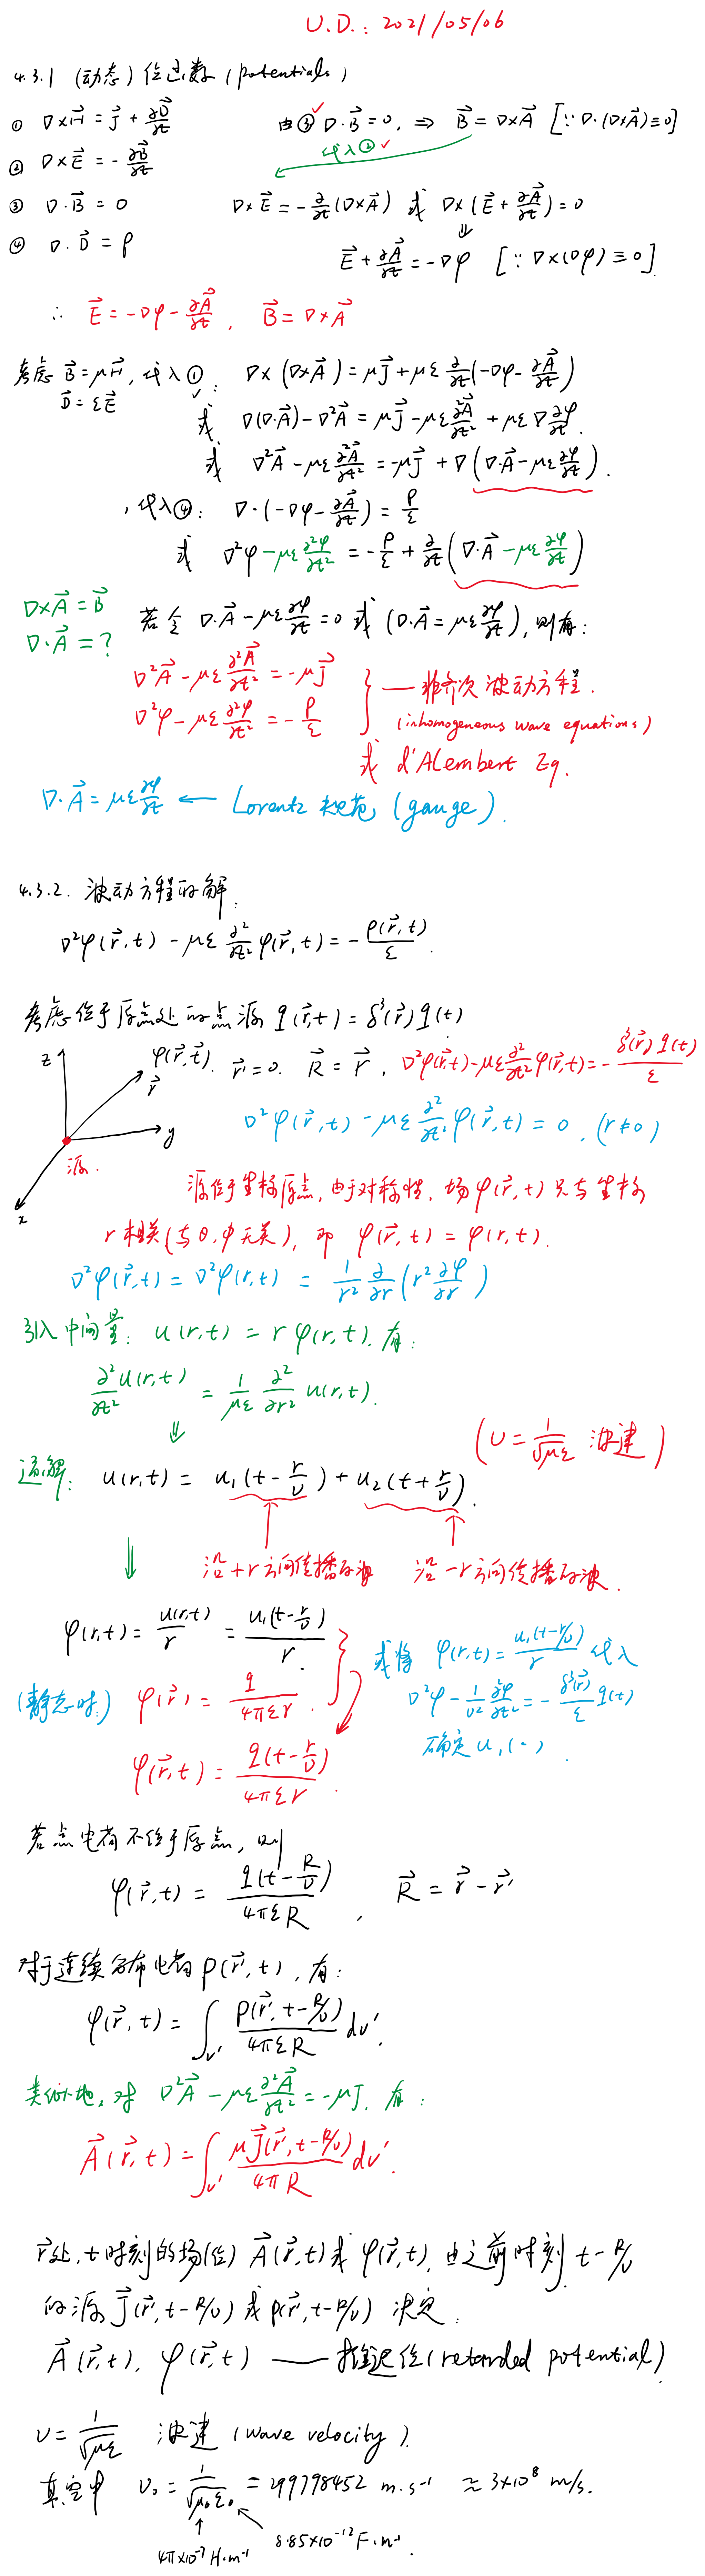 U.D.: 2021/05/06
4.3.1 (动态) 位函数 (potentials)
① ∇×H⃗ = J⃗ + ∂D⃗/∂t 由③ ∇·B⃗ = 0, ⇒ B⃗ = ∇×A⃗ [∵ ∇·(∇×A⃗) ≡ 0]
代入②
② ∇×E⃗ = -∂B⃗/∂t
③ ∇·B⃗ = 0 ∇×E⃗ = -∂/∂t(∇×A⃗) 或 ∇×(E⃗ + ∂A⃗/∂t) = 0
⇓
④ ∇·D⃗ = ρ E⃗ + ∂A⃗/∂t = -∇φ [∵ ∇×(∇φ) ≡ 0]
∴ E⃗ = -∇φ - ∂A⃗/∂t, B⃗ = ∇×A⃗
考虑 B⃗ = μH⃗, 代入①: ∇×(∇×A⃗) = μJ⃗ + με ∂/∂t(-∇φ - ∂A⃗/∂t)
D⃗ = εE⃗
或 ∇(∇·A⃗) - ∇²A⃗ = μJ⃗ - με ∂²A⃗/∂t² + με∇ ∂φ/∂t.
或 ∇²A⃗ - με ∂²A⃗/∂t² = -μJ⃗ + ∇(∇·A⃗ - με ∂φ/∂t).
, 代入④: ∇·(-∇φ - ∂A⃗/∂t) = ρ/ε
或 ∇²φ - με ∂²φ/∂t² = -ρ/ε + ∂/∂t(∇·A⃗ - με ∂φ/∂t)
∇×A⃗ = B⃗
∇·A⃗ = ?
若令 ∇·A⃗ - με ∂φ/∂t = 0 或 (∇·A⃗ = με ∂φ/∂t), 则有:
∇²A⃗ - με ∂²A⃗/∂t² = -μJ⃗
∇²φ - με ∂²φ/∂t² = -ρ/ε
} — 非齐次波动方程.
(inhomogeneous wave equations)
或 d'Alembert Eq.
∇·A⃗ = με ∂φ/∂t ← Lorentz 规范 (gauge).
4.3.2. 波动方程的解:
∇²φ(r⃗,t) - με ∂²/∂t² φ(r⃗,t) = -ρ(r⃗,t)/ε.
考虑位于原点处的点源 q(r⃗,t) = δ³(r⃗)q(t)
z φ(r⃗,t). r⃗' = 0. R⃗ = r⃗, ∇²φ(r⃗,t) - με ∂²/∂t² φ(r⃗,t) = -δ³(r⃗)q(t)/ε
r⃗
y
源.
x
∇²φ(r⃗,t) - με ∂²/∂t² φ(r⃗,t) = 0, (r≠0)
源位于坐标原点, 由于对称性, 场φ(r⃗,t)只与坐标
r相关(与θ,φ无关), 即 φ(r⃗,t) = φ(r,t).
∇²φ(r⃗,t) = ∇²φ(r,t) = 1/r² ∂/∂r(r² ∂φ/∂r)
引入中间量: u(r,t) = rφ(r,t), 有:
∂²u(r,t)/∂t² = 1/με ∂²/∂r² u(r,t).
⇓
(υ = 1/√με 波速)
通解: u(r,t) = u₁(t - r/υ) + u₂(t + r/υ).
⇓
沿+r方向传播的波 沿-r方向传播的波.
φ(r,t) = u(r,t)/r = u₁(t - r/υ)/r.
(静态时) φ(r⃗) = q/4πεr.
φ(r⃗,t) = q(t - r/υ)/4πεr.
或将 φ(r,t) = u₁(t-r/υ)/r 代入
∇²φ - 1/υ² ∂²φ/∂t² = -δ³(r⃗)/ε q(t)
确定 u₁(·).
若点电荷不位于原点, 则
φ(r⃗,t) = q(t - R/υ)/4πεR, R⃗ = r⃗ - r⃗'
对于连续分布电荷ρ(r⃗',t), 有:
φ(r⃗,t) = ∫_v' ρ(r⃗', t-R/υ)/4πεR dv'.
类似地, 对 ∇²A⃗ - με ∂²A⃗/∂t² = -μJ, 有:
A⃗(r⃗,t) = ∫_v' μJ⃗(r⃗', t-R/υ)/4πR dv'.
r⃗处, t时刻的场(位) A⃗(r⃗,t) 或 φ(r⃗,t), 由之前时刻 t-R/υ
的源 J⃗(r⃗', t-R/υ) 或 ρ(r⃗', t-R/υ) 决定.
A⃗(r⃗,t), φ(r⃗,t) — 推迟位 (retarded potential)
υ = 1/√με 波速 (wave velocity).
真空中 υ₀ = 1/√μ₀ε₀ = 299798452 m·s⁻¹ ≈ 3×10⁸ m/s.
4π×10⁻⁷ H·m⁻¹ 8.85×10⁻¹² F·m⁻¹.